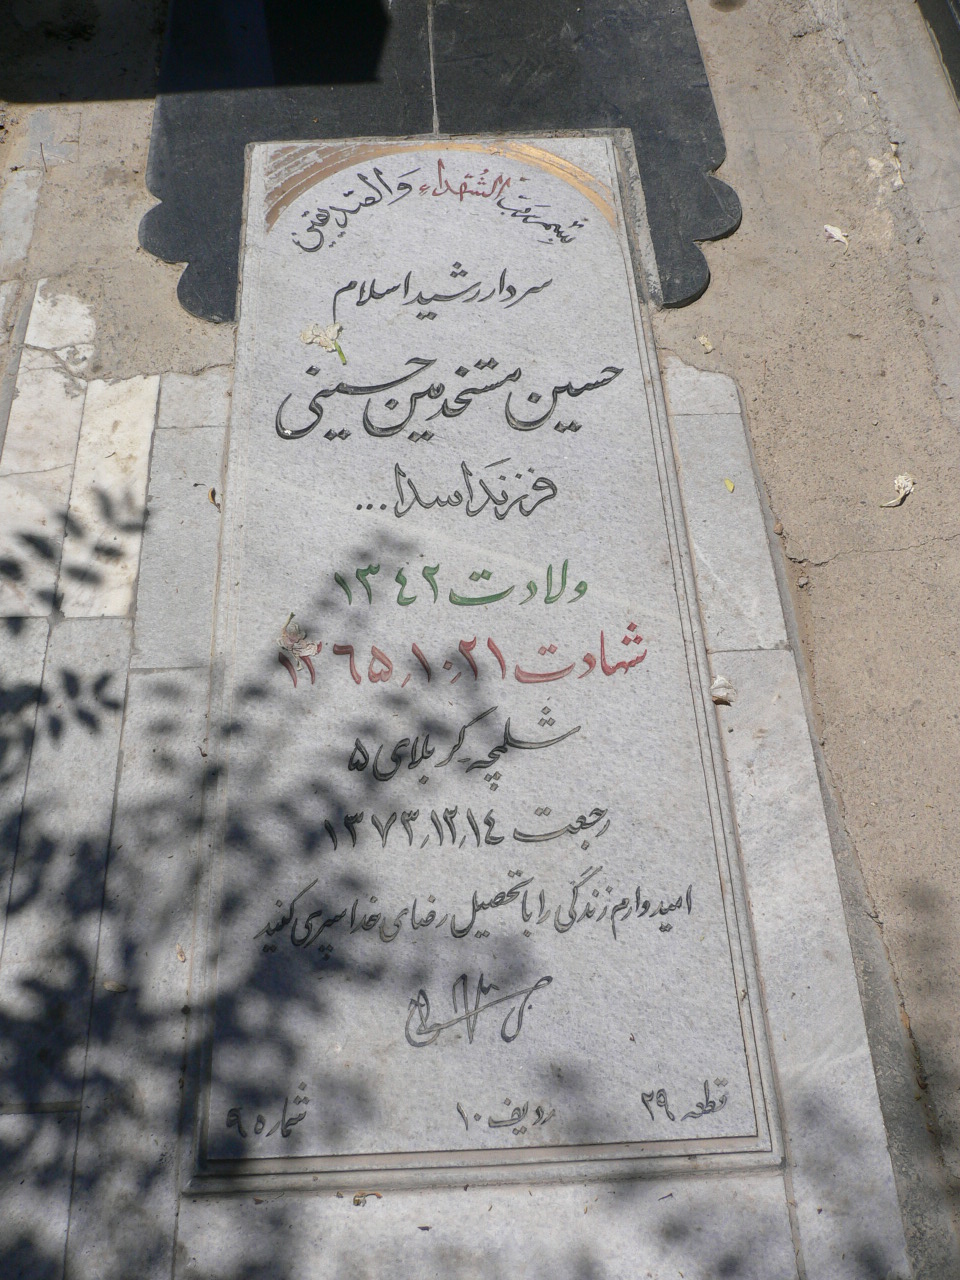 بسم رب الشهداء والصدیقین
سردار رشید اسلام
حسین مستخدمین حسینی
فرزند اسدا...
ولادت ۱۳۴۲
شهادت ۱۳۶۵٫۱۰٫۲۱
شلمچه کربلای ۵
رجعت ۱۳۷۳٫۱۲٫۱۴
امیدوارم زندگی را با تحصیل رضای خدا سپری کنید
قطعه ۲۹ ردیف ۱۰ شماره ۹